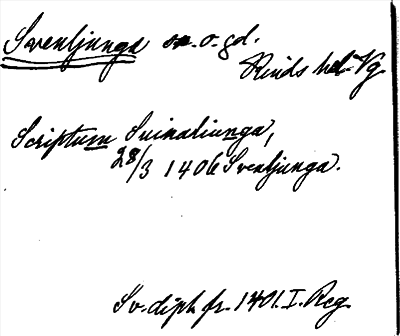 Svenljunga sn. o. gd.
Kinds hd. Vg
Scriptum Suinaliunga,
28/3 1406 Svenljunga.
Sv. dipl. fr. 1401. I. Reg.